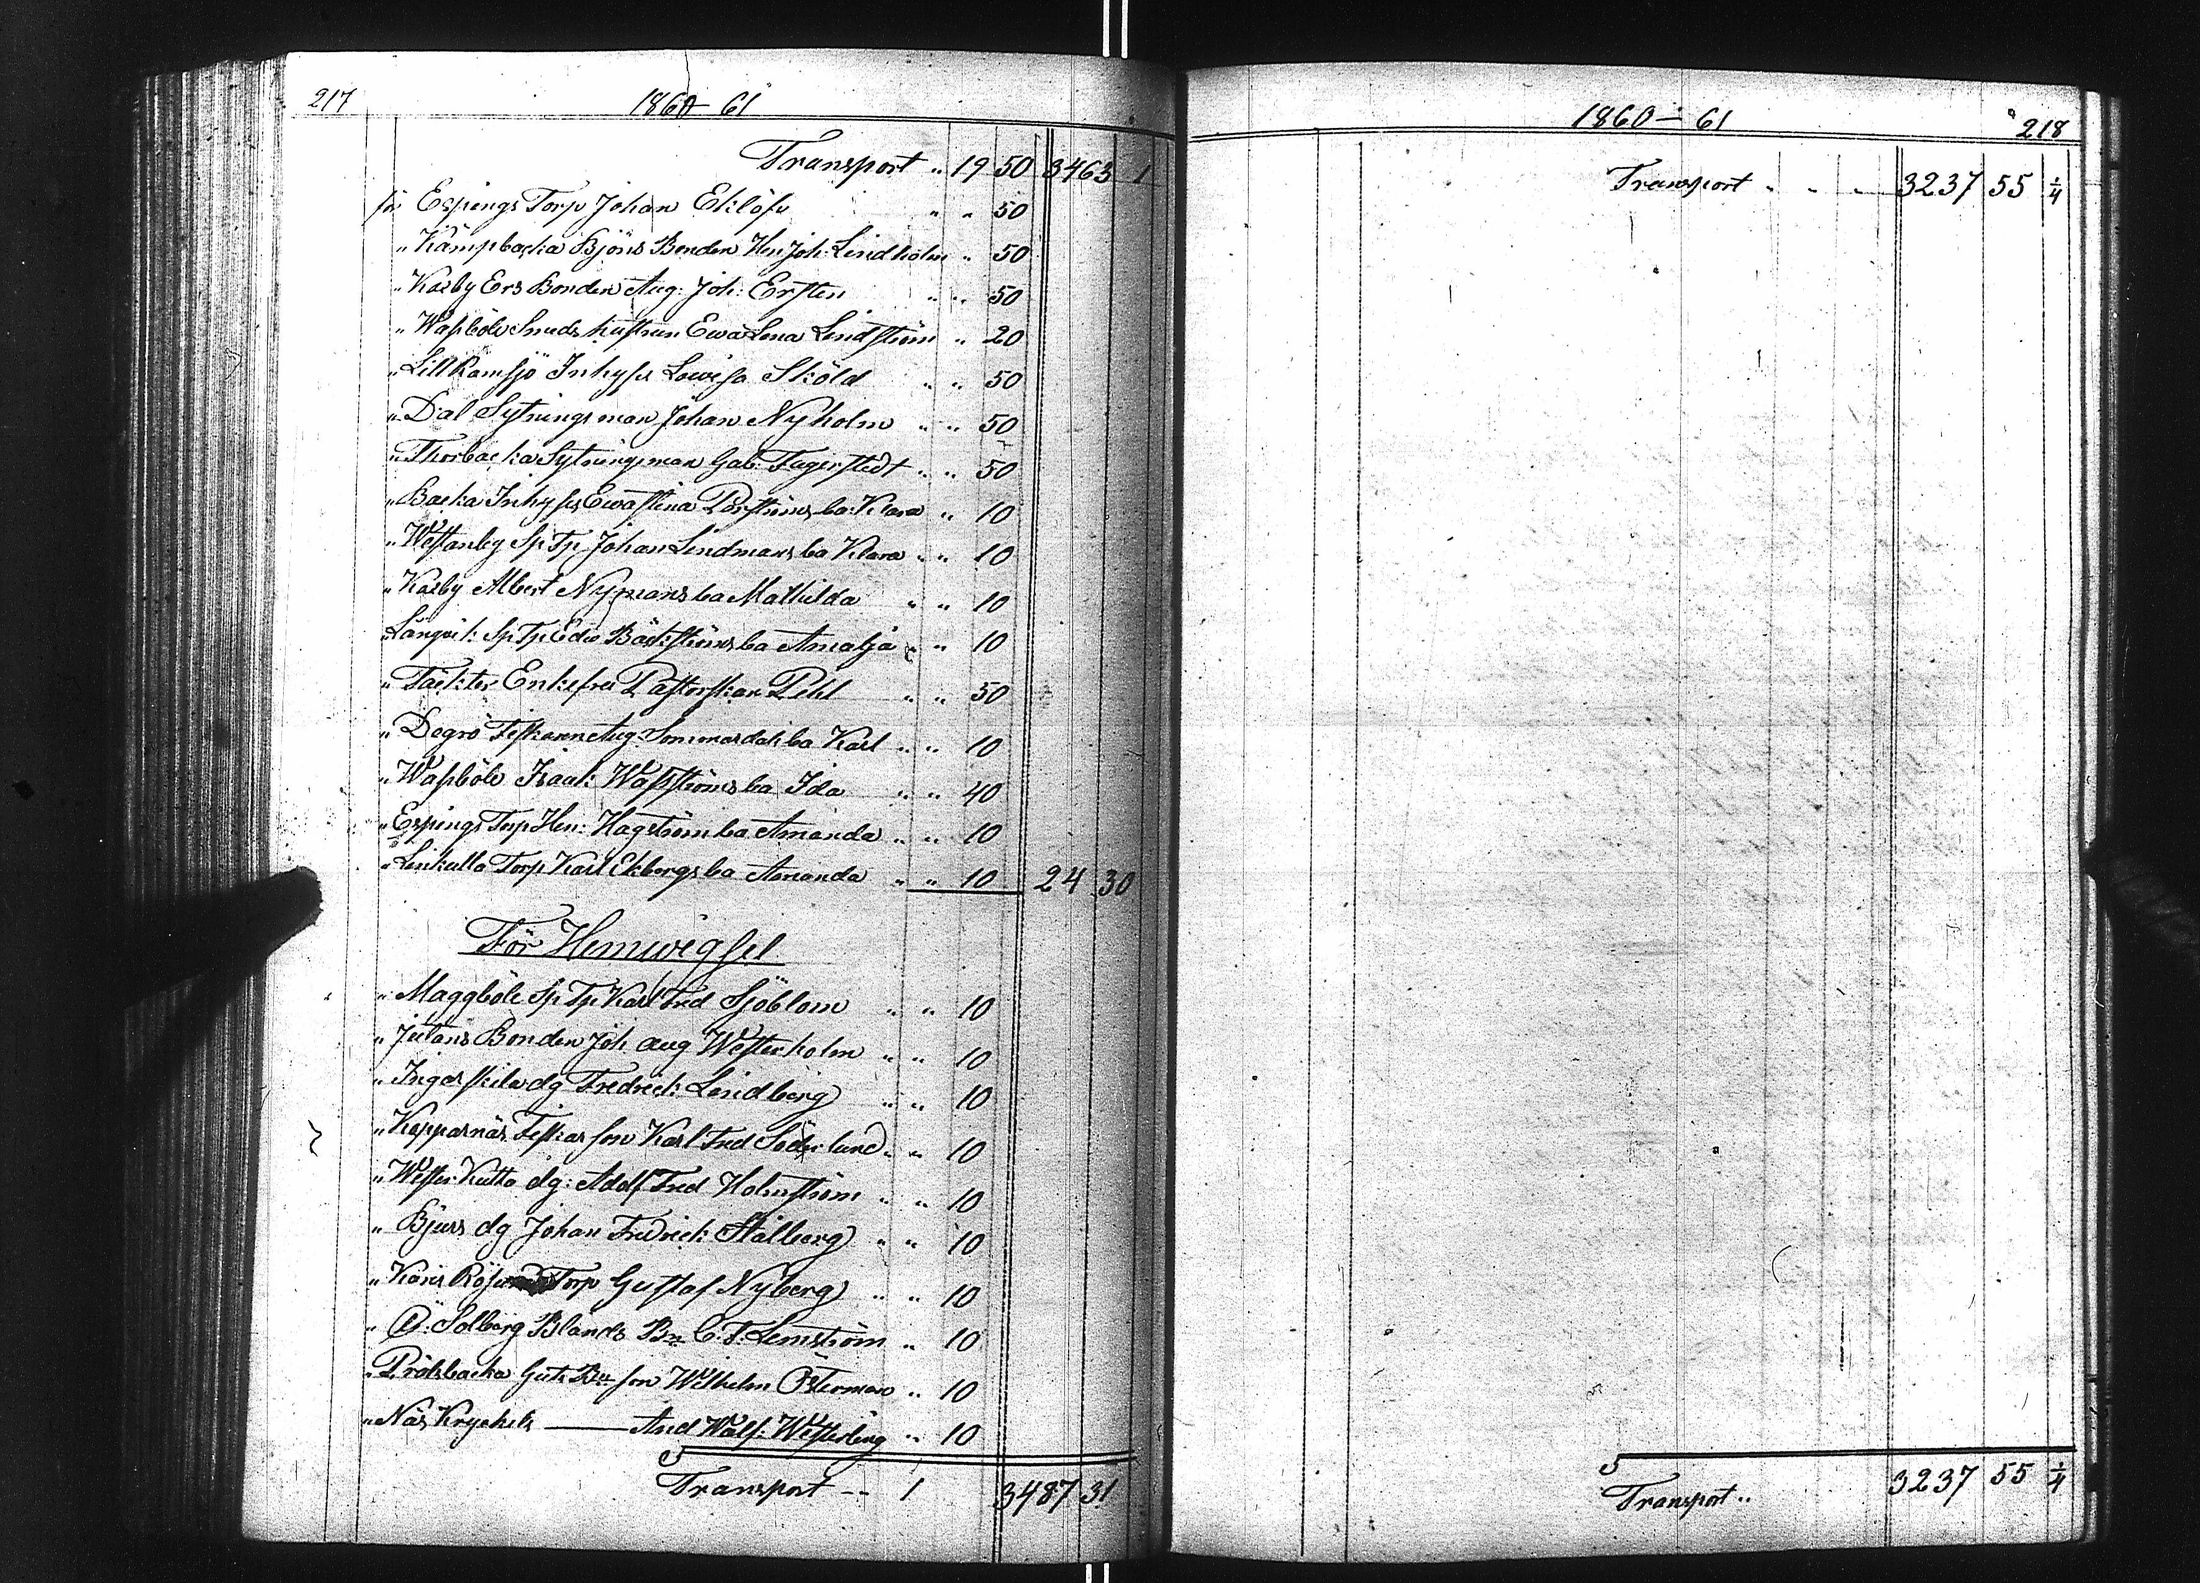 217 1860-61
Transport „ 19 50 3463 1
för Espings Torp Johan Eklöf „ „ 50
„ Kämpbacka Bjöns Bonden Hen Joh: Lindholm „ 50
„ Karby Ers Bonden Aug: Joh: Ersten „ „ 50
„ Wasböle Smeds hustrun Ewa Lena Lindström „ 20
„ Lill Ramsjö Inhyses Lowisa Sköld „ „ 50
„ Dal Sytningsman Johan Nyholm „ „ 50
„ Thorbacka Sytningsman Gab: Fagerstedt „ „ 50
„ Backa Inhyses Ewastina Porströms ba: Klara „ 10
„ Westanby Sp Tp Johan Lindmans ba Klara „ „ 10
„ Karby Albert Nymans ba Mathilda „ „ 10
„ Långvik Sp Tp Edw Bäckströms ba Amalja „ „ 10
„ Täckter Enkefru Pastorskan Pihl „ „ 50
„ Degerö Fiskaren Aug: Sommardals ba Karl „ „ 10
„ Wasböle Isaak Wasströms ba Ida „ „ 40
„ Espings Torp Hen: Hagström ba Amanda „ „ 10
„ Linkulla Torp Karl Ekbergs ba Amanda „ „ 10 24 30
För Hemwigsel
„ Maggböle Sp Tp Karl Fred Sjöblom „ „ 10
„ Jutans Bonden Joh aug Westerholm „ „ 10
„ Ingarskila dg Fredrick Lindberg „ „ 10
„ Kopparnäs Fiskar son Karl Fred Söderlund „ „ 10
„ Wester Kulla dg: Adolf Fred Holmström „ „ 10
„ Bjurs dg Johan Fredrick Stålberg „ „ 10
„ Karis Torp Gustaf Nyberg „ „ 10
„ Ö: Solberg Blands Bn C. F. Lemström „ 10
„ Prästbacka Guts Bn son Wilhelm Österman „ 10
„ Näs Kryckels — And Walf: Westerling „ 10
Transport -- 1 3487 31
1860-61 218
Transport „ „ „ 3237 55 1/4
Transport „ 3237 55 1/4